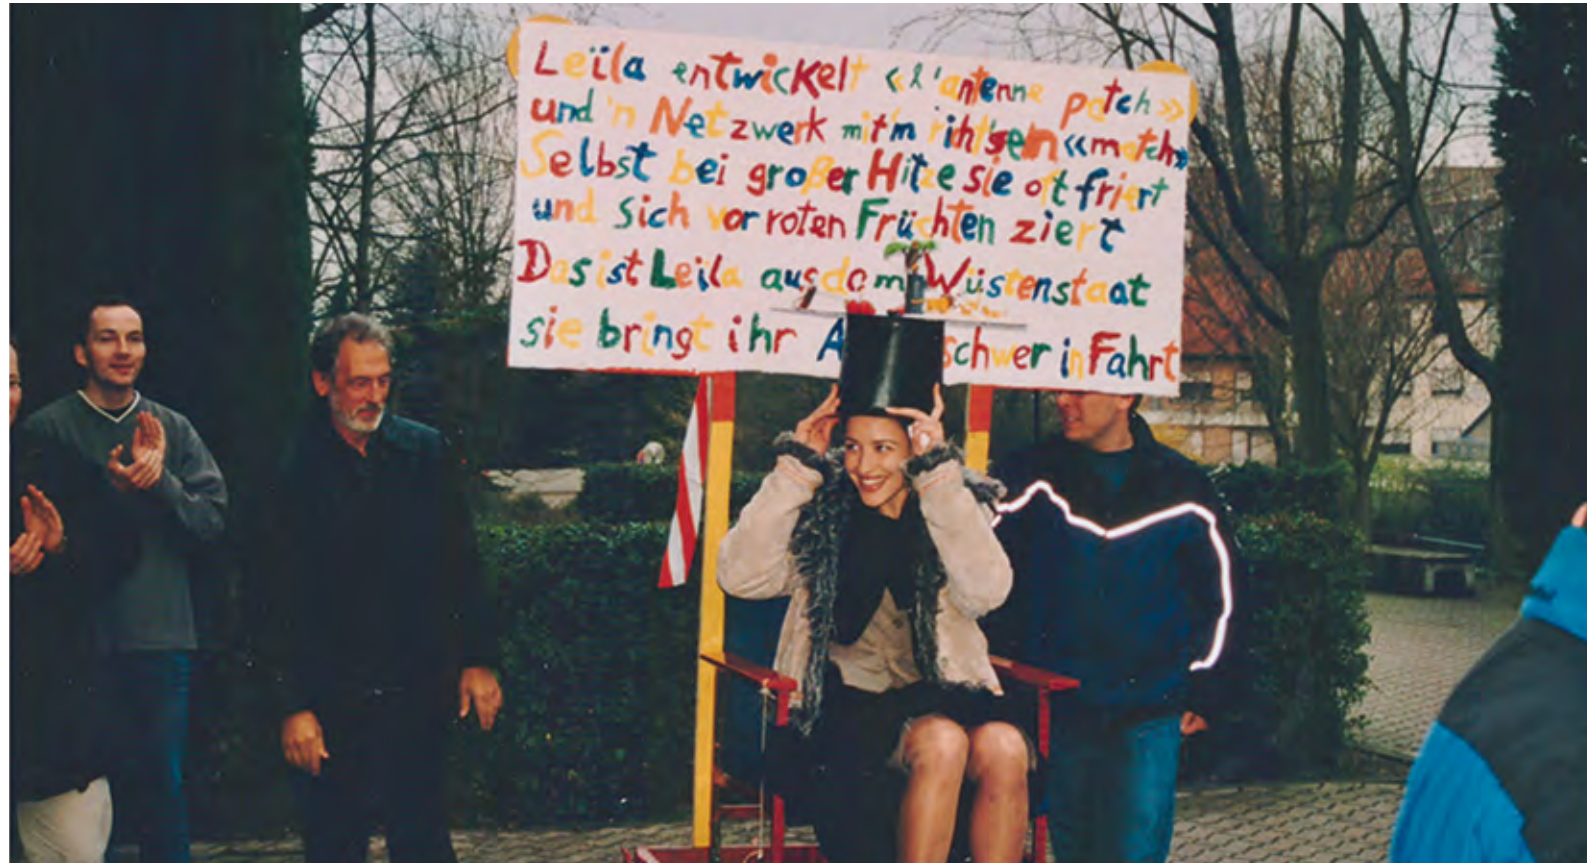 Leïla entwickelt «l'antenne patch»
und 'n Netzwerk mit'm richt'gen «match»
Selbst bei großer Hitze sie oft friert
und sich vor roten Früchten ziert
Das ist Leila aus dem Wüstenstaat
sie bringt ihr schwer in Fahrt